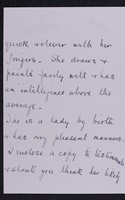 quick & clever with her
fingers. She draws &
paints fairly well & has
an intelligence above the
average.
She is a lady by birth
& has very pleasant manners.
I enclose a copy to testimonials
& should you think her likely